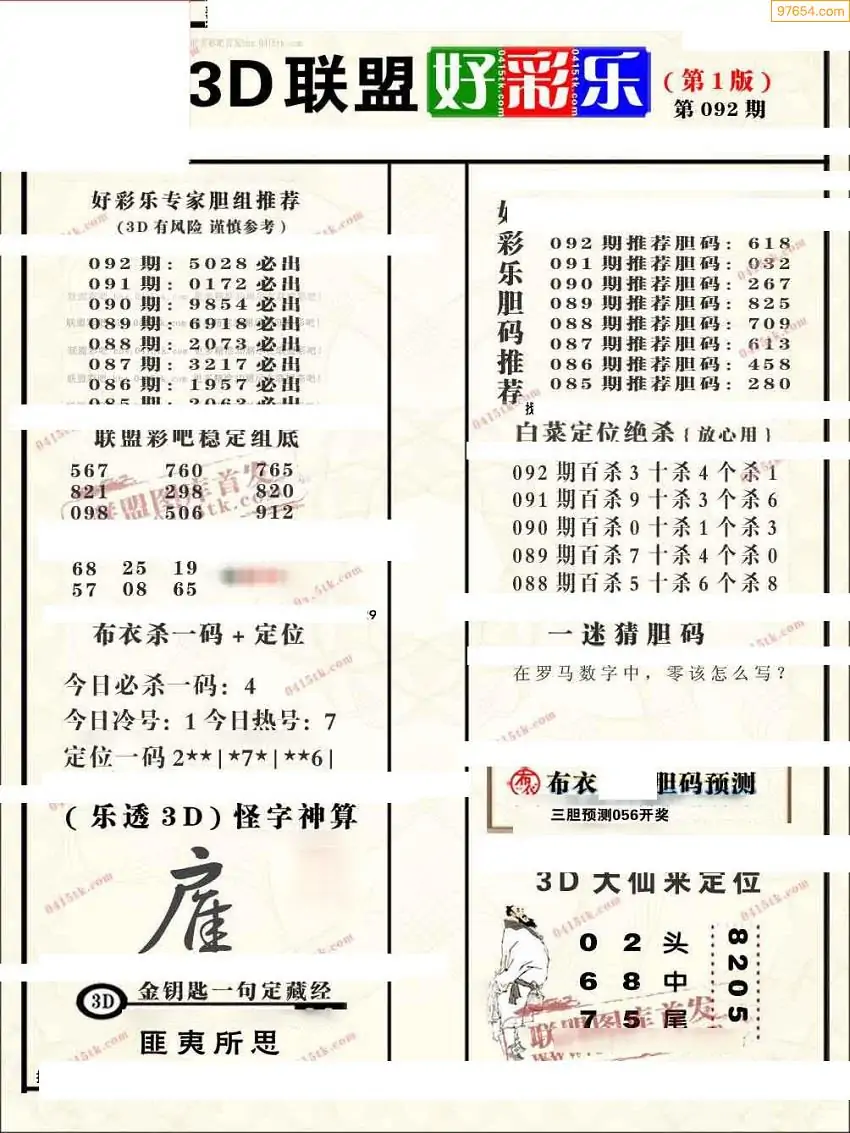 97654.com
3D联盟好彩乐(第1版)
第092期
好彩乐专家胆组推荐
(3D有风险 谨慎参考)
092期：5028必出
091期：0172必出
090期：9854必出
089期：6918必出
088期：2073必出
087期：3217必出
086期：1957必出
联盟彩吧稳定组底
567 760 765
821 298 820
098 506 912
68 25 19
57 08 65
布衣杀一码+定位
今日必杀一码：4
今日冷号：1 今日热号：7
定位一码2**|*7*|**6|
(乐透3D)怪字神算
雇
3D 金钥匙一句定藏经
匪夷所思
好彩乐胆码推荐
092期推荐胆码：618
091期推荐胆码：032
090期推荐胆码：267
089期推荐胆码：825
088期推荐胆码：709
087期推荐胆码：613
086期推荐胆码：458
085期推荐胆码：280
白菜定位绝杀{放心用}
092期百杀3十杀4个杀1
091期百杀9十杀3个杀6
090期百杀0十杀1个杀3
089期百杀7十杀4个杀0
088期百杀5十杀6个杀8
一迷猜胆码
在罗马数字中，零该怎么写？
布衣 胆码预测
三胆预测056开奖
3D大仙来定位
0 2 头
6 8 中
7 5 尾
8205
联盟图库首发
0415tk.com